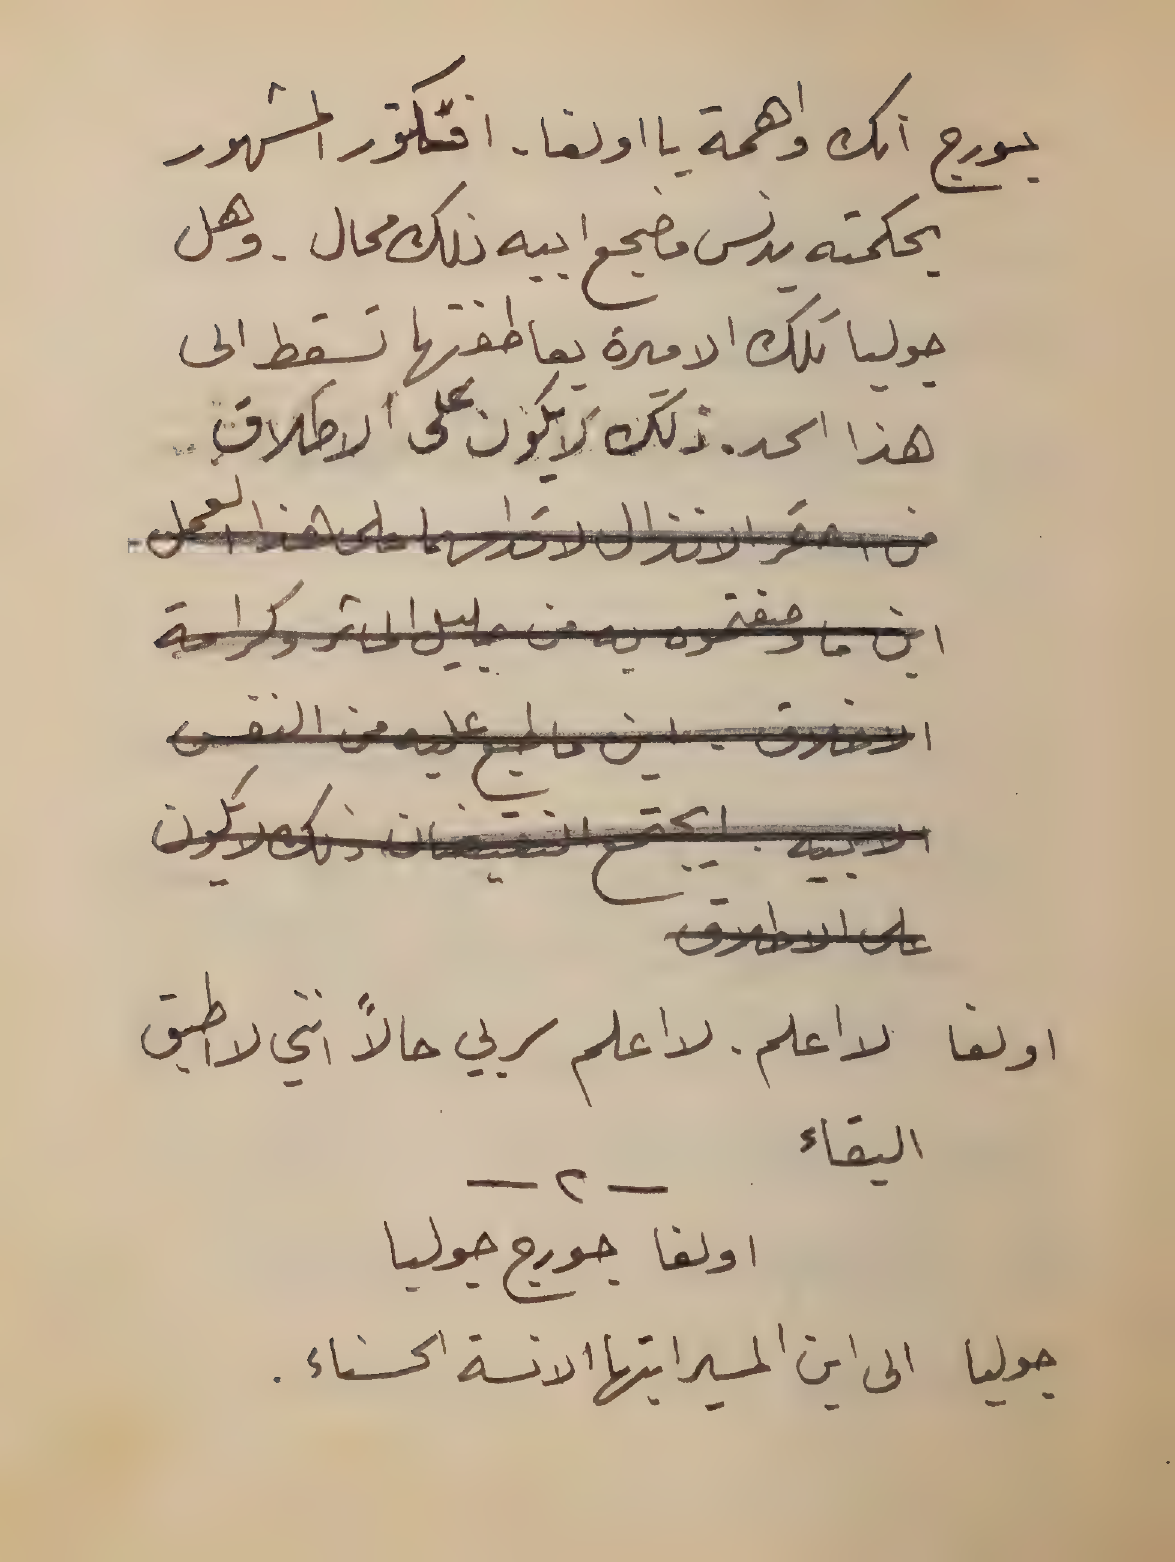 جورج انك واهمة يا اولغا. افكتور المشهور
بحكمته يدنس مضجع ابيه ذلك محال. وهل
جوليا تلك الاميرة بعاطفتها تسقط الى
هذا الحد. ذلك لا يكون على الاطلاق
من الانذال لا هذا العمل
اين ما وصفتموه به من جليل المآثر وكرامة
الاخلاق. اين ما طبع عليه من النفس
الابية. ايجتمع النقيضان ذلك لا يكون
على الاطلاق
اولغا لا اعلم. لا اعلم سر بي حالاً انني لا اطيق
البقاء
— ٢ —
اولغا جورج جوليا
جوليا الى اين المسير ايتها الانسة الحسناء.